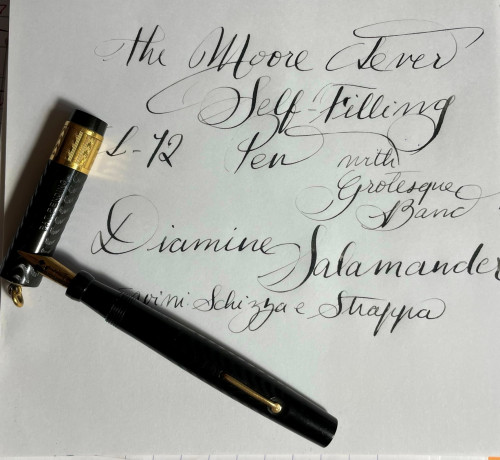 the Moore Lever
Self-Filling
L-72 Pen with
Grotesque
Band
Diamine Salamander
Favini Schizza e Strappa